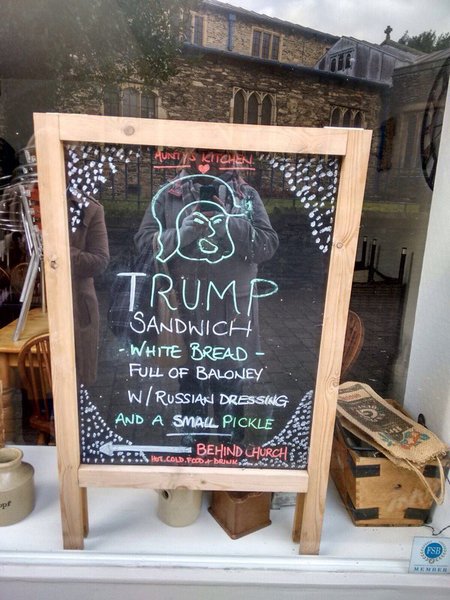 AUNTY'S KITCHEN
TRUMP
SANDWICH
- WHITE BREAD -
FULL OF BALONEY
W/ RUSSIAN DRESSING
AND A SMALL PICKLE
BEHIND CHURCH
HOT. COLD. FOOD + DRINK
FSB
MEMBER